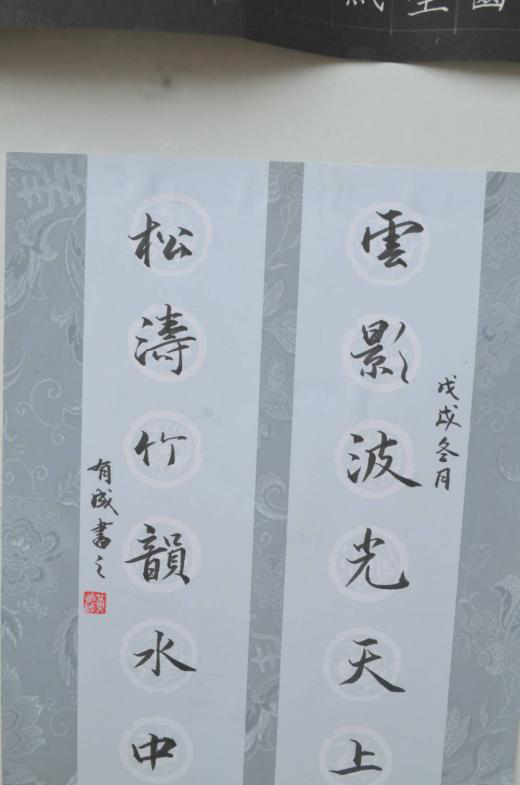 戊戌冬月
雲影波光天上
松濤竹韻水中
有成書之